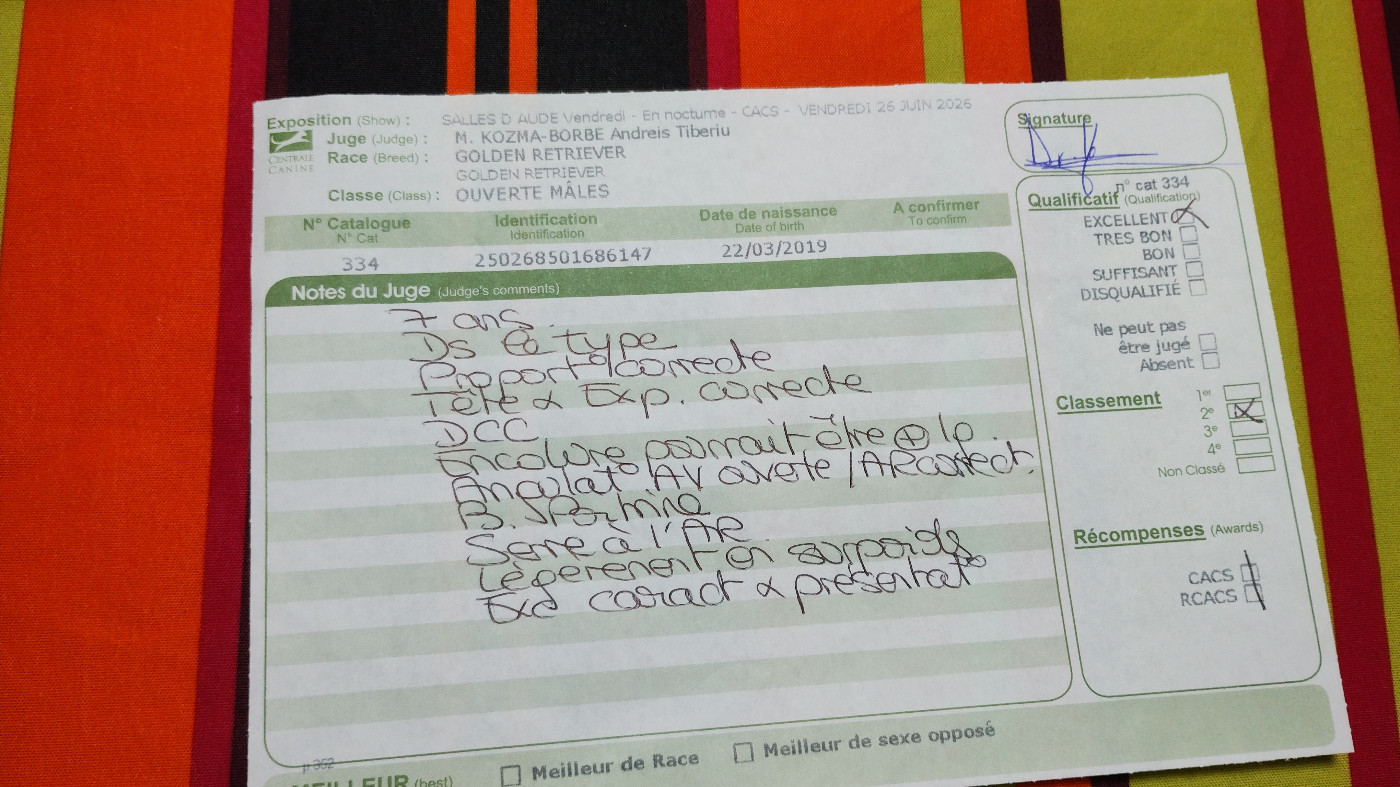 Exposition (Show) : SALLES D AUDE Vendredi - En nocturne - CACS - VENDREDI 26 JUIN 2026
CENTRALE CANINE
Juge (Judge) : M. KOZMA-BORBE Andreis Tiberiu
Race (Breed) : GOLDEN RETRIEVER
GOLDEN RETRIEVER
Classe (Class) : OUVERTE MÂLES
N° Catalogue Identification Date de naissance A confirmer
N° Cat Identification Date of birth To confirm
334 250268501686147 22/03/2019
Notes du Juge (Judge's comments)
7 ans.
Ds le type
Proport° correcte
Tête & Exp. correcte
DCC
Encolure pourrait être ⊕ lg.
Angulat° AV ouverte / AR correct.
B.
Serré à l'AR
Légèrement en surpoids
Exc caract & présentat°
Signature
n° cat 334
Qualificatif (Qualification)
EXCELLENT
TRES BON
BON
SUFFISANT
DISQUALIFIÉ
Ne peut pas
être jugé
Absent
Classement
1er
2e
3e
4e
Non Classé
Récompenses (Awards)
CACS
RCACS
p 362
MEILLEUR (best) Meilleur de Race Meilleur de sexe opposé